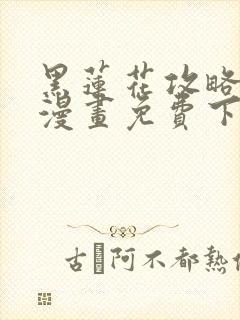 黑蓮花攻略
漫畫免費下
古 阿不都熱